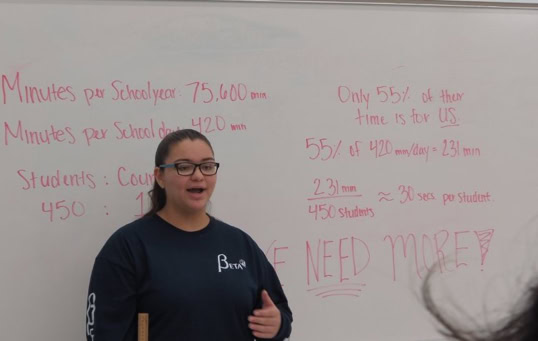 Minutes per Schoolyear: 75,600 min
Minutes per School day 420 min
Students : Coun
450 : 1
Only 55% of their
time is for US.
55% of 420 min/day = 231 min
231 min
450 students
≈ 30 secs per student.
E NEED MORE!
BETA